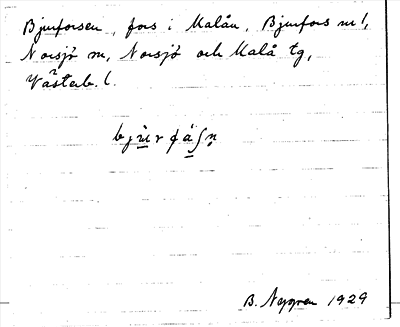 Bjurforsen, fors i Malån, Bjurfors nr 1,
Norsjö sn, Norsjö och Malå tg,
Västerb. l.
B. Nygren 1929